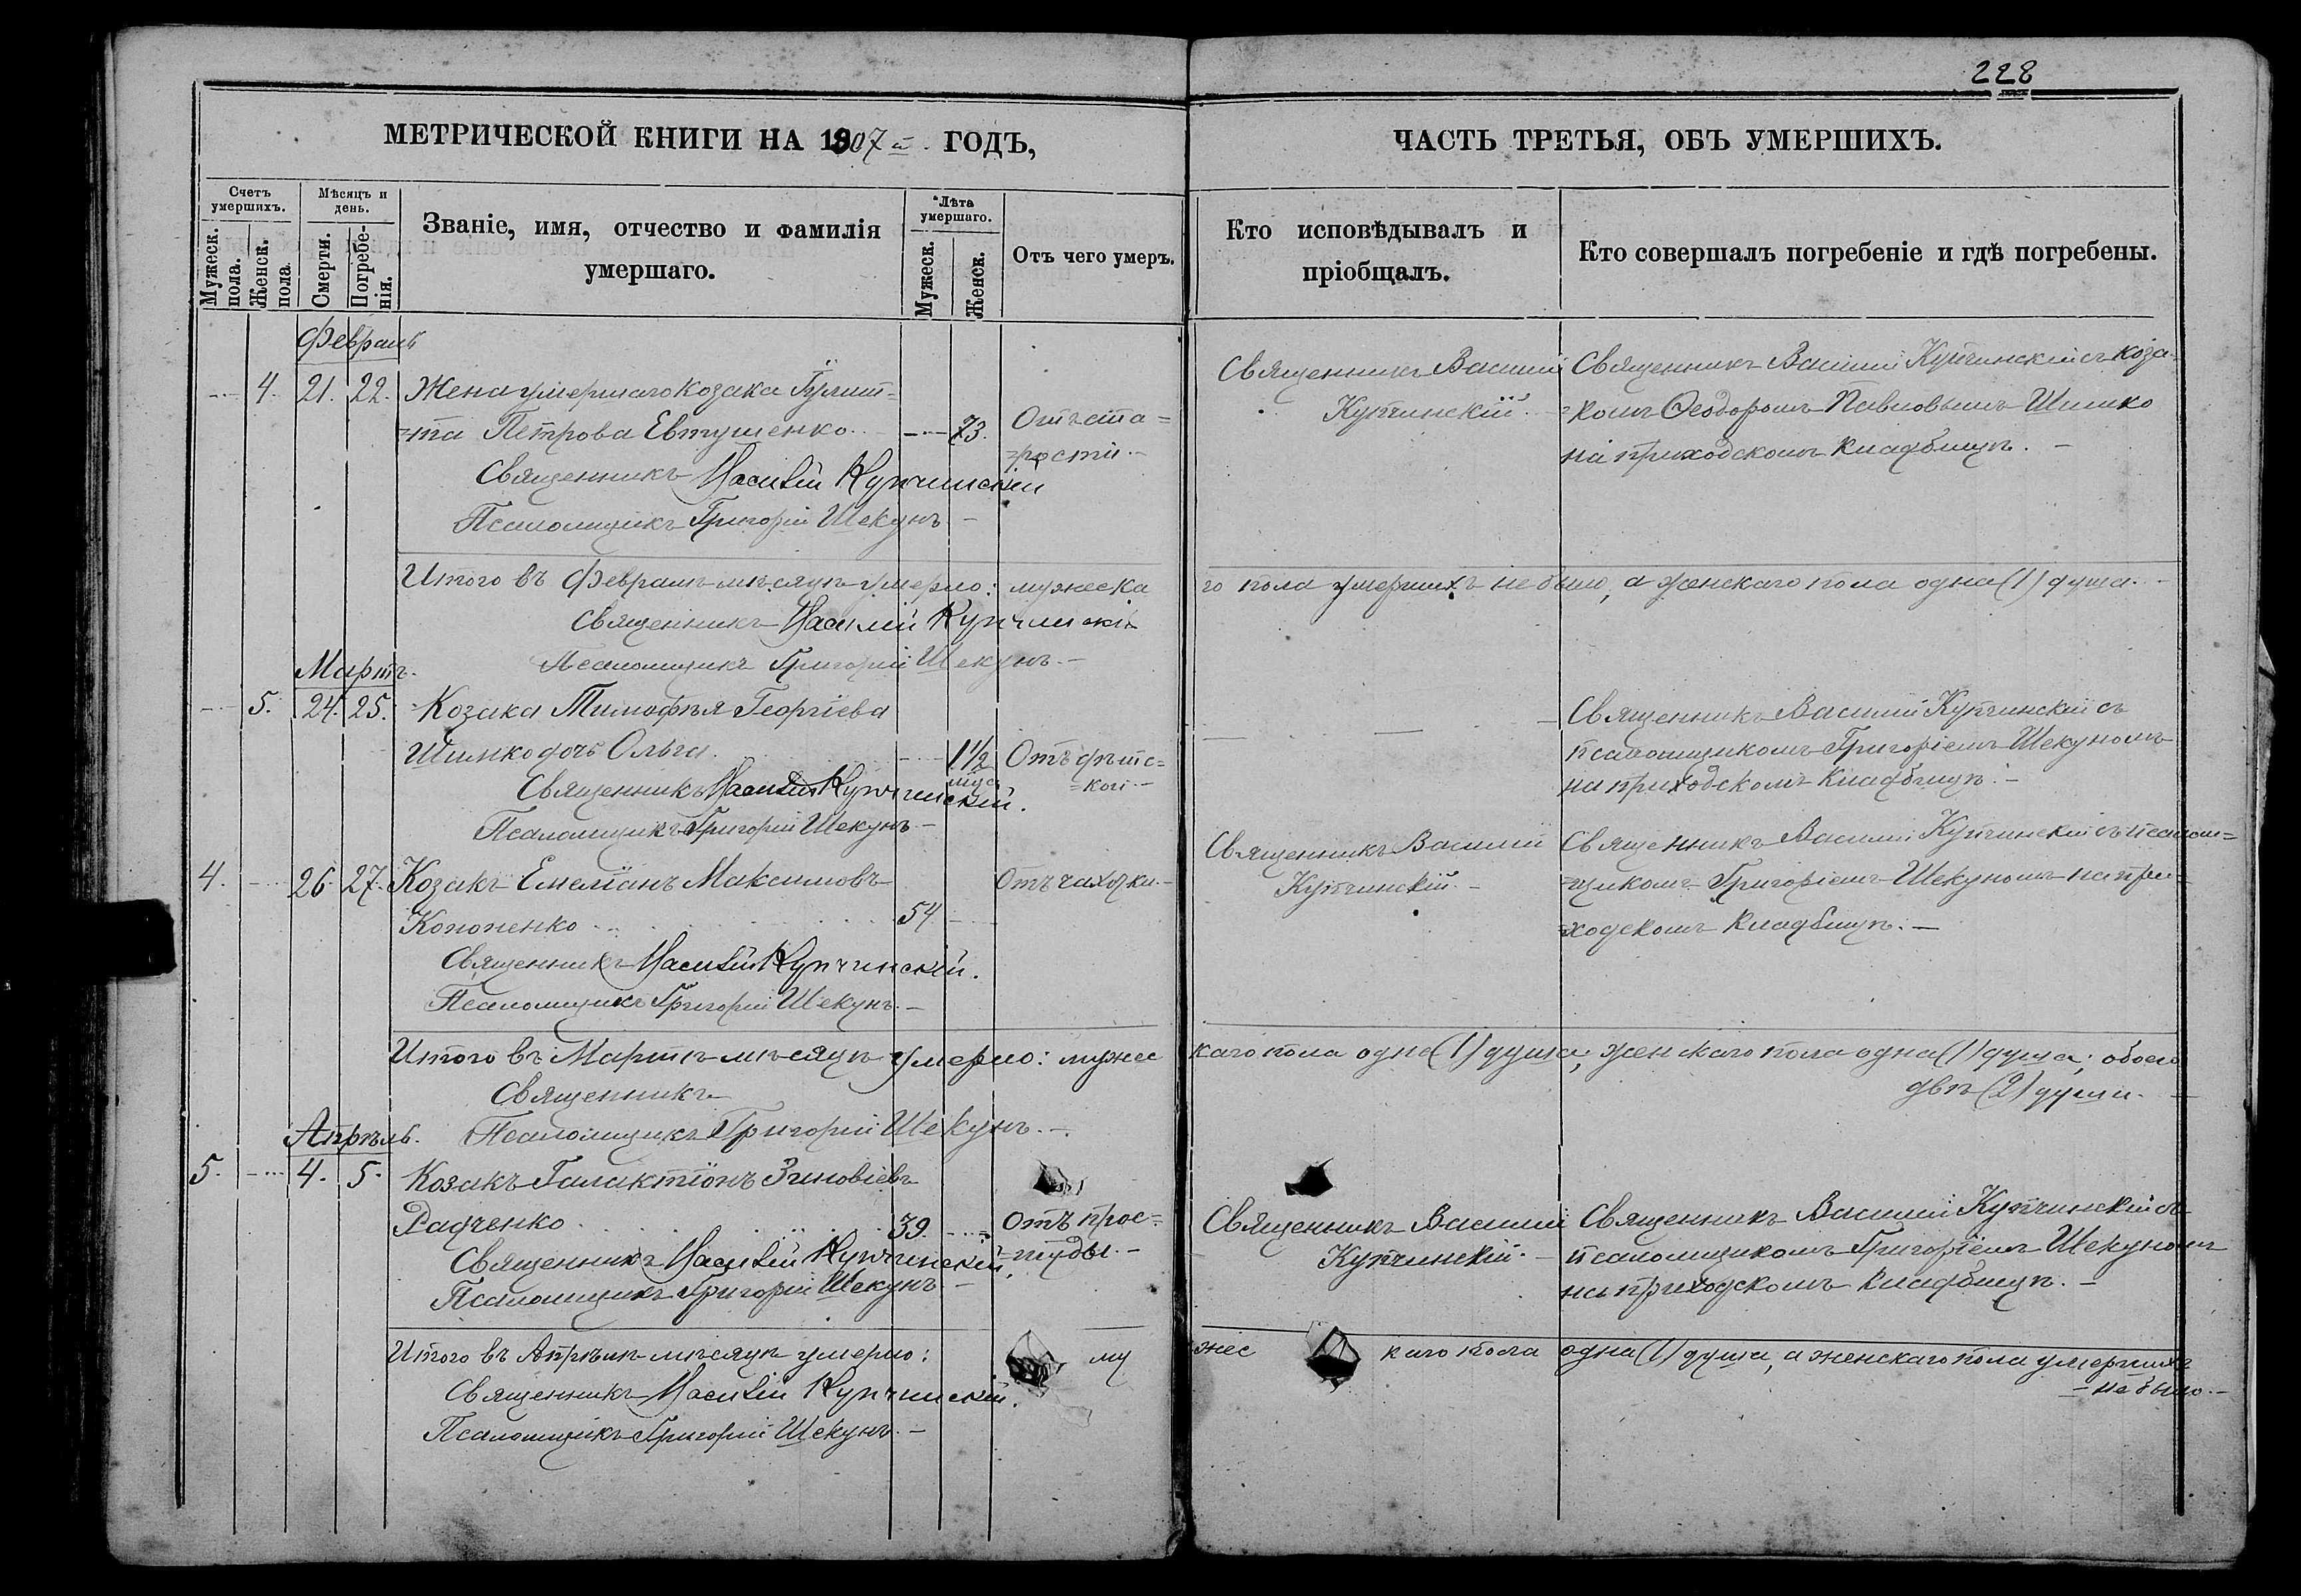 228
МЕТРИЧЕСКОЙ КНИГИ НА 1907й. ГОДЪ,
ЧАСТЬ ТРЕТЬЯ, ОБЪ УМЕРШИХЪ.
Счетъ умершихъ.
Мужеск. пола.
Женск. пола
Мѣсяцъ и день.
Смерти.
Погребе-нія.
Званіе, имя, отчество и фамилія
умершаго.
Лѣта умершаго.
Мужеск.
Женск.
Отъ чего умеръ.
Кто исповѣдывалъ и
пріобщалъ.
Кто совершалъ погребеніе и гдѣ погребены.
Февраль
4. 21. 22. Жена умершаго козака Іулит=
=та Петрова Евтушенко. 73. Отъ ста=
=рости.
Священникъ Василій Купчинскій
Псаломщикъ Григорій Шекунъ
Священникъ Василій
Купчинскій
Священникъ Василій Купчинскій съ коза-
=комъ Ѳеодоромъ Павловымъ Шимко
на приходскомъ кладбищѣ.
Итого въ Февралѣ мѣсяцѣ умерло: мужеска
го пола умершихъ не было, а женскаго пола одна (1) душа.
Священникъ Василій Купчинскій
Псаломщикъ Григорій Шекунъ
Мартъ.
5. 24. 25. Козака Тимофѣя Георгіева
Шимко дочь Ольга 1 1/2 Отъ дѣтс=
мца =кой
Священникъ Василій Купчинскій.
Псаломщикъ Григорій Шекунъ
Священникъ Василій Купчинскій съ
псаломщикомъ Григоріемъ Шекуномъ
на приходскомъ кладбищѣ.
4. 26. 27. Козакъ Емеліанъ Максимовъ Отъ чахотки.
Кононенко 54
Священникъ Василій Купчинскій.
Псаломщикъ Григорій Шекунъ.
Священникъ Василій
Купчинскій.
Священникъ Василій Купчинскій съ псалом=
=щикомъ Григоріемъ Шекуномъ на при=
=ходскомъ кладбищѣ.
Итого въ Мартѣ мѣсяцѣ умерло: мужес
каго пола одна (1) душа; женскаго пола одна (1) душа; обоего
двѣ (2) души.
Священникъ
Псаломщикъ Григорій Шекунъ.
Апрѣль.
5. 4. 5. Козакъ Галактіонъ Зиновіевъ
Радченко 39. Отъ прос=
=туды.
Священникъ Василій Купчинскій.
Псаломщикъ Григорій Шекунъ
Священникъ Василій
Купчинскій.
Священникъ Василій Купчинскій съ
псаломщикомъ Григоріемъ Шекуномъ
на приходскомъ кладбищѣ.
Итого въ Апрѣлѣ мѣсяцѣ умерло: му
жес каго пола одна (1) душа, а женскаго пола умершихъ
не было.
Священникъ Василій Купчинскій.
Псаломщикъ Григорій Шекунъ.